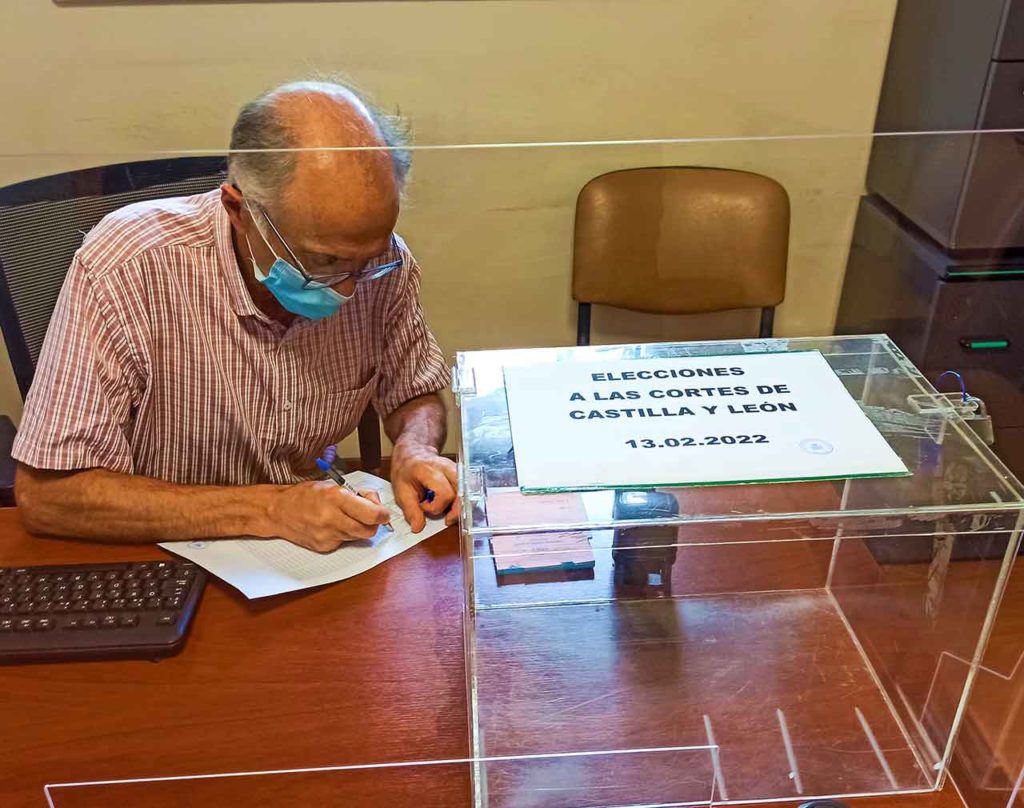 ELECCIONES
A LAS CORTES DE
CASTILLA Y LEÓN
13.02.2022